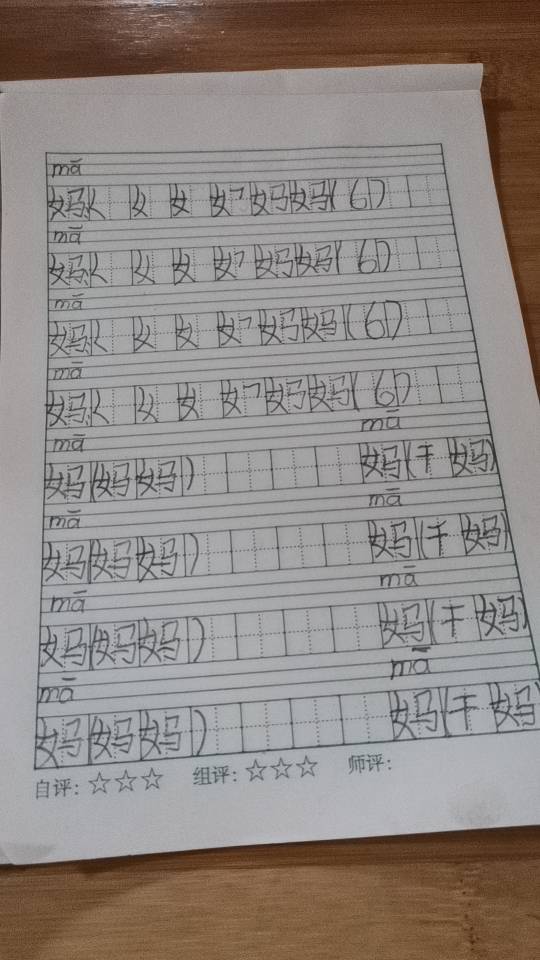 mā
妈く 女 女 女㇕ 妈 妈(6)
mā
妈く 女 女 女㇕ 妈 妈(6)
mā
妈く 女 女 女㇕ 妈 妈(6)
mā
妈く 女 女 女㇕ 妈 妈(6)
mā mā
妈(妈妈) 妈(干妈)
mā mā
妈(妈妈) 妈(干妈)
mā mā
妈(妈妈) 妈(干妈)
mā mā
妈(妈妈) 妈(干妈)
自评:☆☆☆ 组评:☆☆☆ 师评: